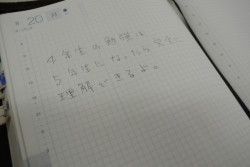 20
4年生の勉強は
5年生になったら完全に
理解できるよ。